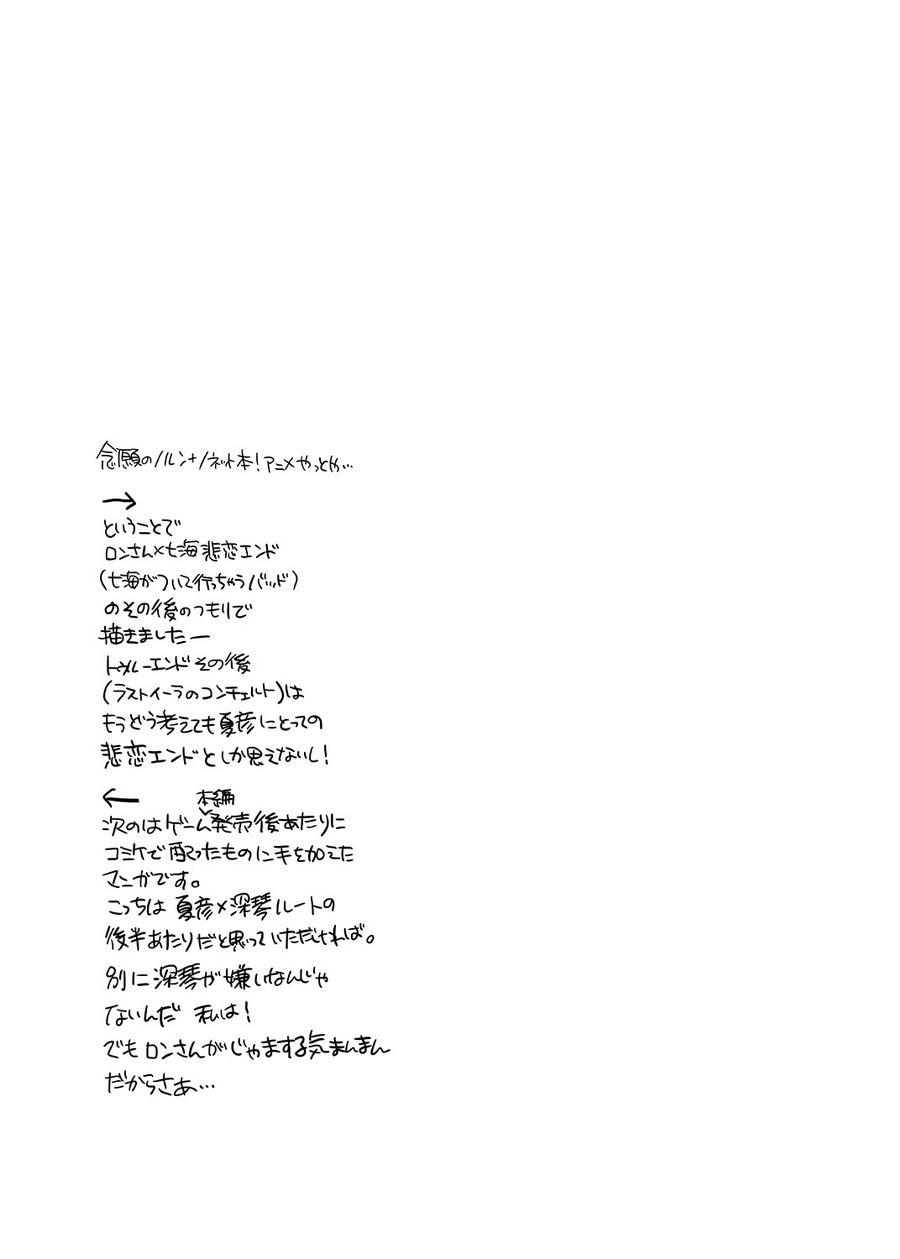 念願のノルン+ノネット本！アニメやっとか…
→
ということで
ロンさん×七海悲恋エンド
（七海がついて行っちゃうバッド）
のその後のつもりで
描きましたー
トゥルーエンドその後
（ラストイーラのコンチェルト）は
もうどう考えても夏彦にとっての
悲恋エンドとしか思えないし！
←
本編
次のはゲーム発売後あたりに
コミケで配ったものに手を加えた
マンガです。
こっちは 夏彦×深琴ルートの
後半あたりだと思っていただければ。
別に深琴が嫌いなんじゃ
ないんだ 私は！
でもロンさんがじゃまする気まんまん
だからさぁ…